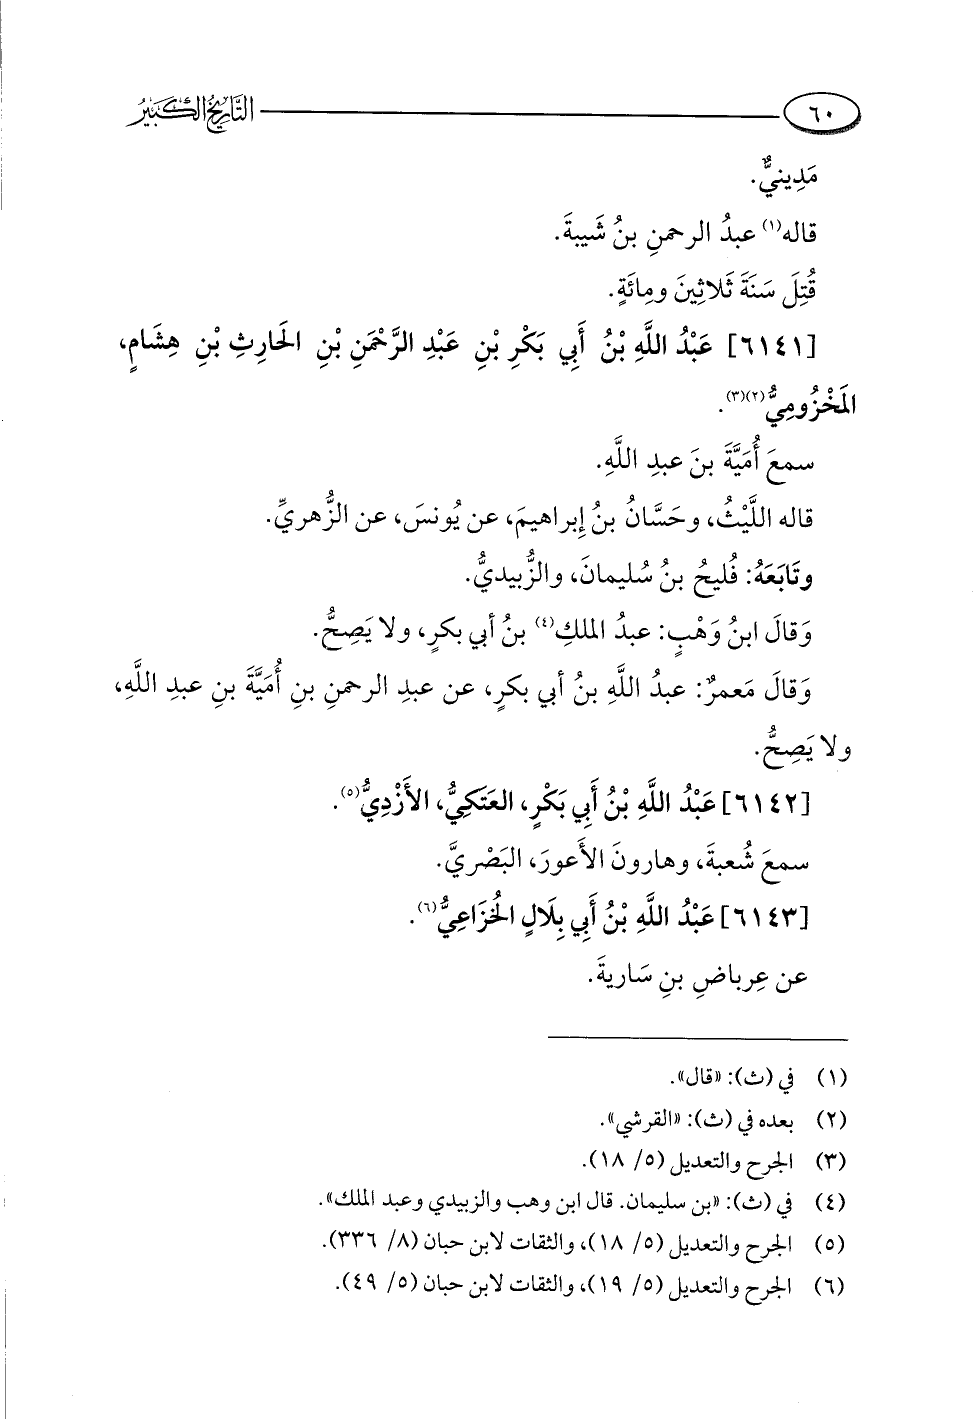 ٦٠ التَّارِيخُ الكَبِيرُ
مَدِينيٌّ.
قاله(١) عبدُ الرحمنِ بنُ شَيبةَ.
قُتِلَ سَنَةَ ثَلاثِينَ ومِائَةٍ.
[٦١٤١] عَبْدُ اللَّهِ بْنُ أَبِي بَكْرِ بْنِ عَبْدِ الرَّحْمَنِ بْنِ الحَارِثِ بْنِ هِشَامٍ،
المَخْزُومِيُّ(٢)(٣).
سمعَ أُمَيَّةَ بنَ عبدِ اللَّهِ.
قاله اللَّيْثُ، وحَسَّانُ بنُ إبراهيمَ، عن يُونسَ، عن الزُّهريِّ.
وتَابَعَهُ: فُليحُ بنُ سُليمانَ، والزُّبيديُّ.
وَقالَ ابنُ وَهْبٍ: عبدُ الملكِ(٤) بنُ أبي بكرٍ، ولا يَصِحُّ.
وَقالَ مَعمرٌ: عبدُ اللَّهِ بنُ أبي بكرٍ، عن عبدِ الرحمنِ بنِ أُمَيَّةَ بنِ عبدِ اللَّهِ،
ولا يَصِحُّ.
[٦١٤٢] عَبْدُ اللَّهِ بْنُ أَبِي بَكْرٍ، العَتَكِيُّ، الأَزْدِيُّ(٥).
سمعَ شُعبةَ، وهارونَ الأَعورَ، البَصْريَّ.
[٦١٤٣] عَبْدُ اللَّهِ بْنُ أَبِي بِلَالٍ الخُزَاعِيُّ(٦).
عن عِرباضِ بنِ سَاريةَ.
(١) في (ث): «قال».
(٢) بعده في (ث): «القرشي».
(٣) الجرح والتعديل (٥/ ١٨).
(٤) في (ث): «بن سليمان. قال ابن وهب والزبيدي وعبد الملك».
(٥) الجرح والتعديل (٥/ ١٨)، والثقات لابن حبان (٨/ ٣٣٦).
(٦) الجرح والتعديل (٥/ ١٩)، والثقات لابن حبان (٥/ ٤٩).